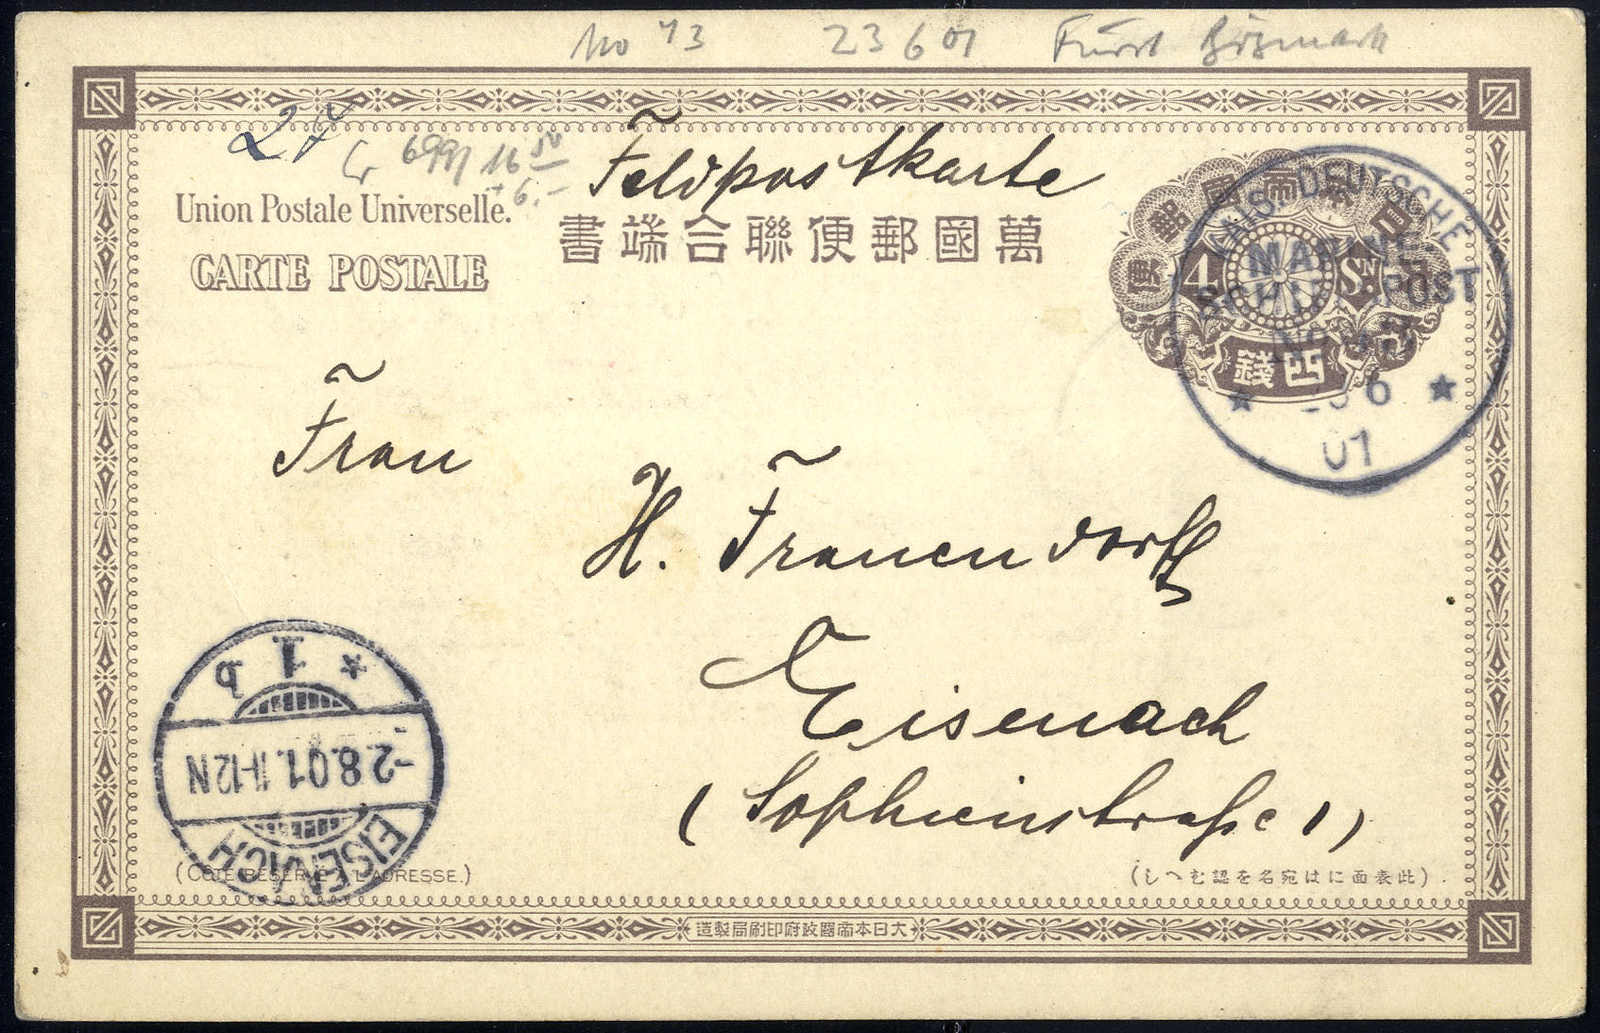 No 73 23 6 01 Fürst Bismarck
Feldpostkarte
Union Postale Universelle.
CARTE POSTALE
萬國郵便聯合端書
大日本帝國郵便
4 SN
四錢
KAIS. DEUTSCHE
MARINE-
SCHIFFSPOST
No 73
6
01
Frau
H. Frauendorff
Eisenach
(Sophienstraße 1)
1 b
-2.8.01.11-12N
EISENACH
(CÔTÉ RÉSERVÉ À L'ADRESSE.)
(此表面には宛名を認むへし)
大日本帝國政府印刷局製造